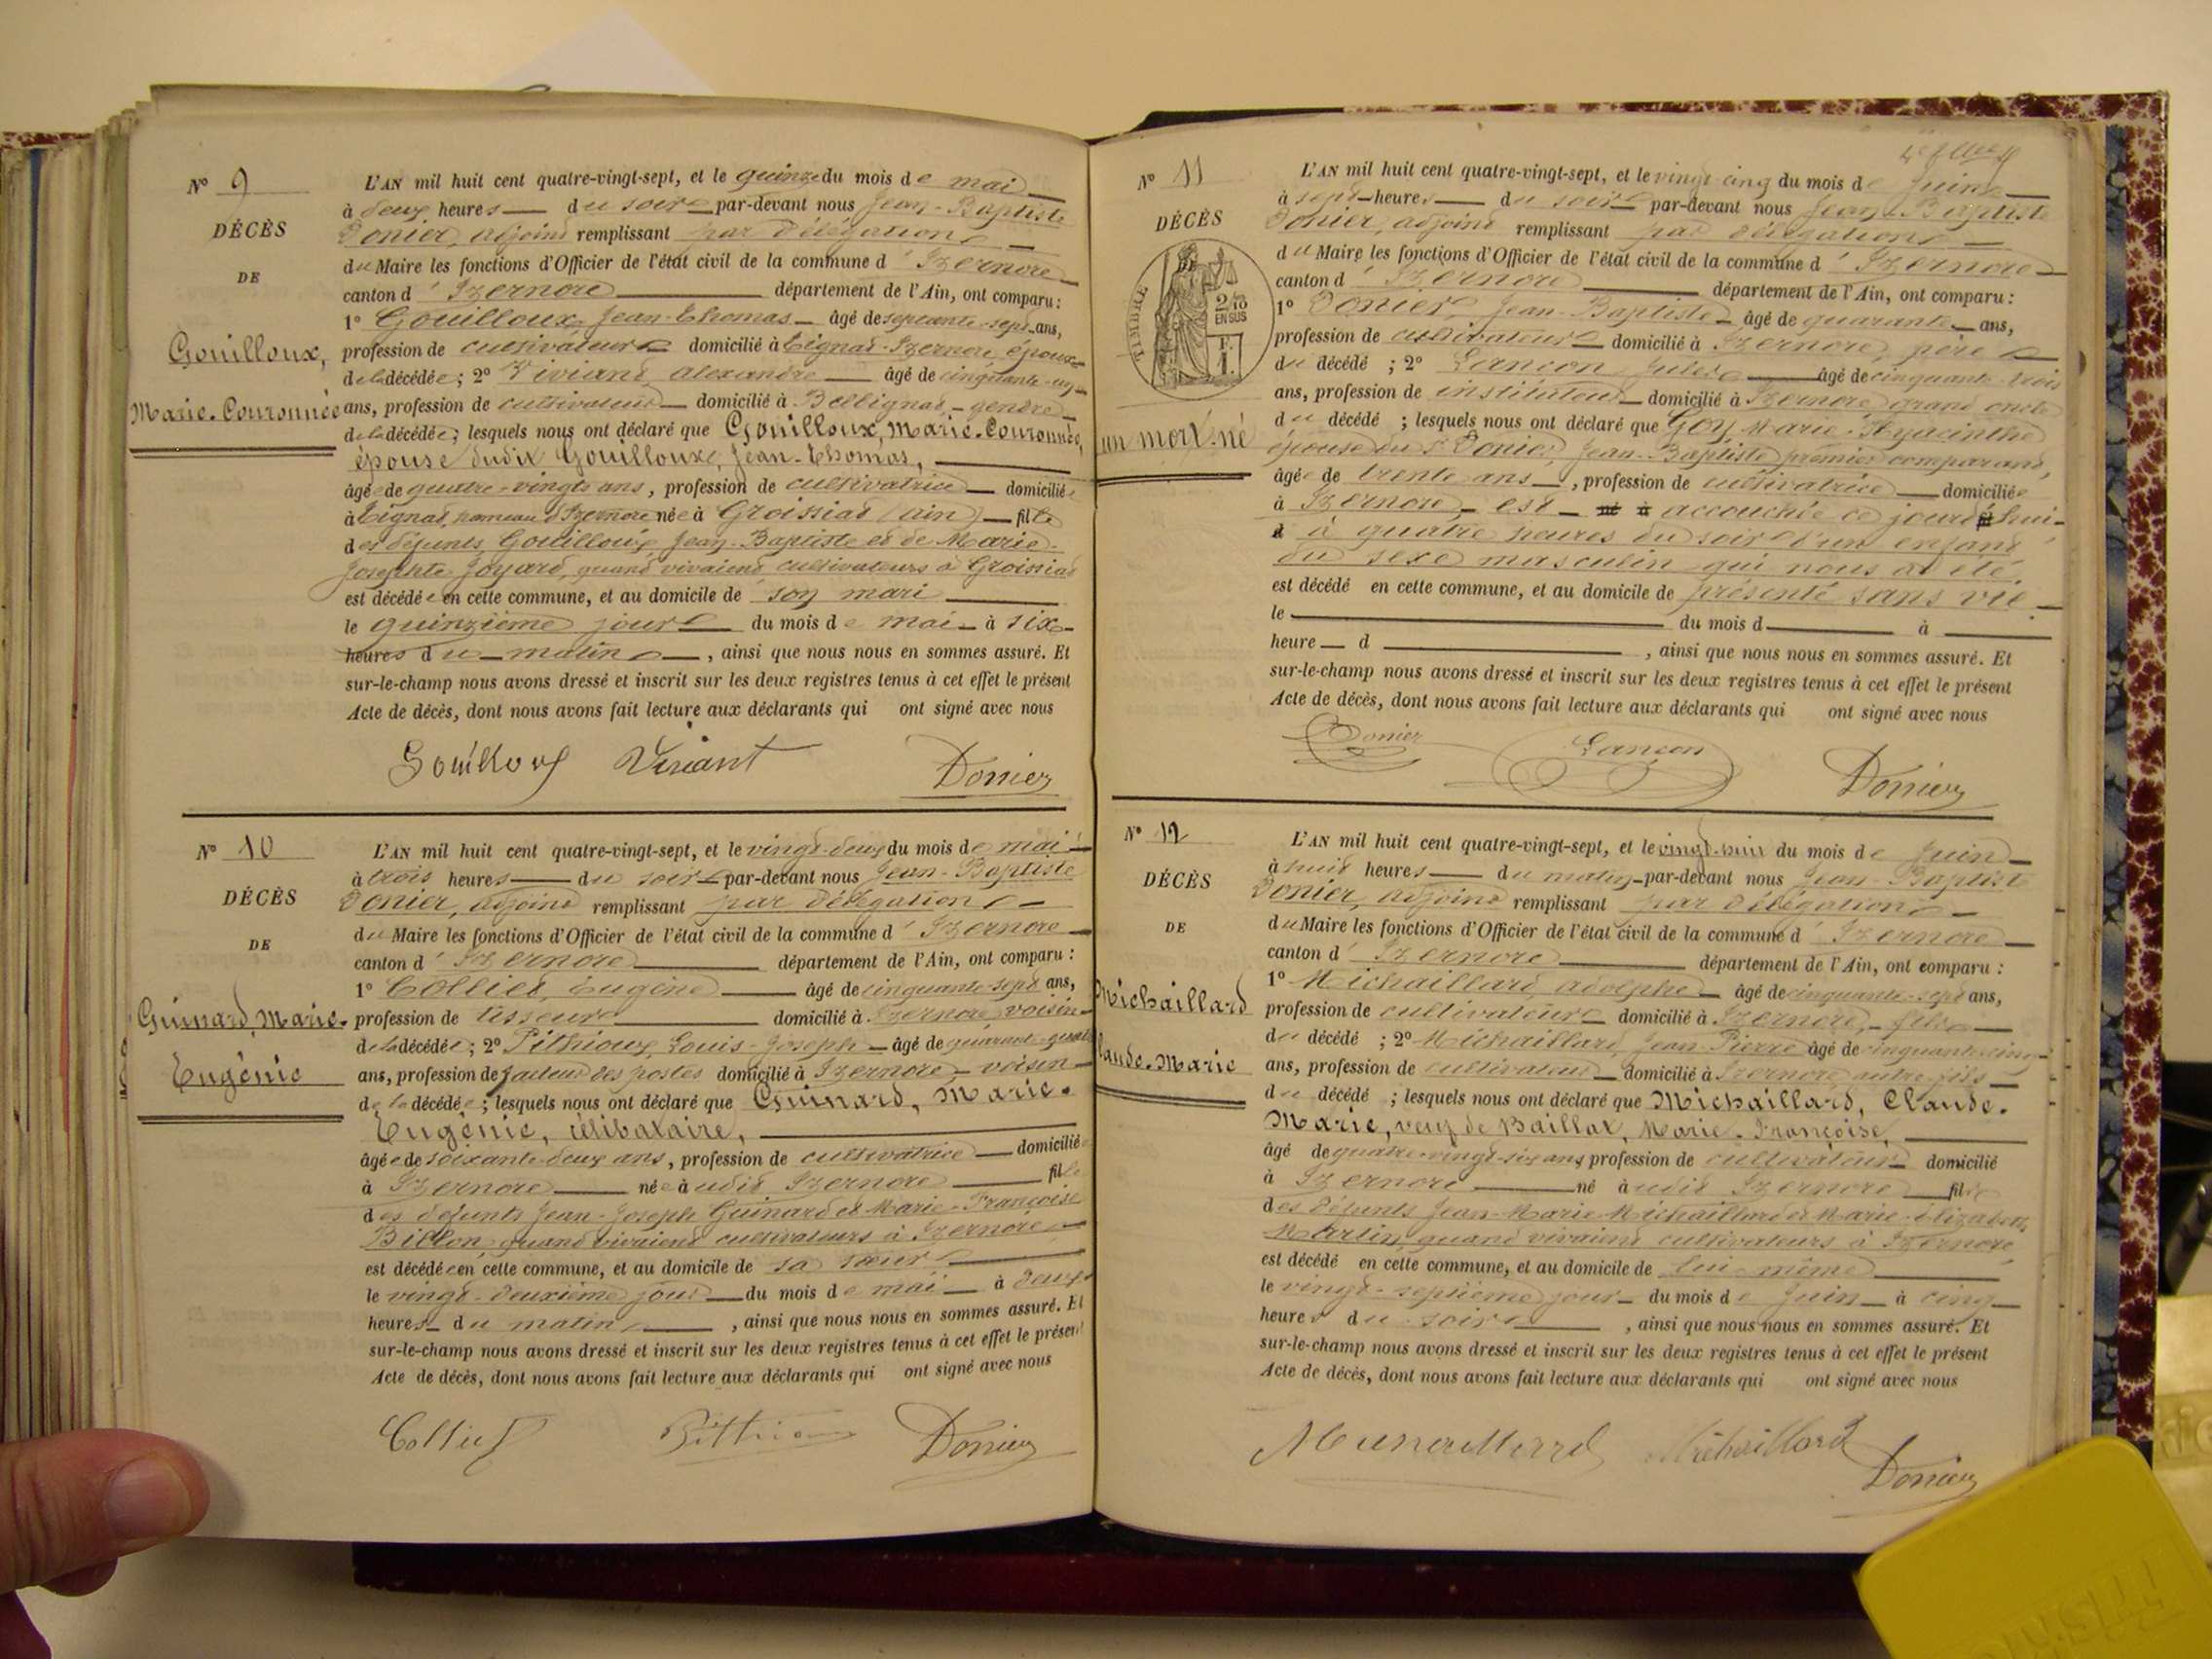 N° 9
DÉCÈS
DE
Gouilloux,
Marie-Couronnée
L'AN mil huit cent quatre-vingt-sept, et le quinze du mois de mai
à deux heures du soir par-devant nous Jean-Baptiste
Donier, adjoint remplissant par délégation
du Maire les fonctions d'Officier de l'état civil de la commune d'Izernore
canton d'Izernore département de l'Ain, ont comparu :
1° Gouilloux Jean-Thomas âgé de septante-sept ans,
profession de cultivateur domicilié à Tignat-Izernore, époux
de la décédée ; 2° Viviant Alexandre âgé de cinquante-un
ans, profession de cultivateur domicilié à Bellignat gendre
de la décédée ; lesquels nous ont déclaré que Gouilloux, Marie-Couronnée,
épouse dudit Gouilloux, Jean-Thomas,
âgée de quatre-vingts ans, profession de cultivatrice domiciliée
à Tignat, hameau d'Izernore née à Groissiat (Ain) fille
des défunts Gouilloux Jean-Baptiste et de Marie-
Josephte Joyard, quand vivaient cultivateurs à Groissiat
est décédée en cette commune, et au domicile de son mari
le quinzième jour du mois de mai à six
heures du matin, ainsi que nous nous en sommes assuré. Et
sur-le-champ nous avons dressé et inscrit sur les deux registres tenus à cet effet le présent
Acte de décès, dont nous avons fait lecture aux déclarants qui ont signé avec nous
Gouilloux Viviant Donier
N° 10
DÉCÈS
DE
Guinard, Marie-
Eugénie
L'AN mil huit cent quatre-vingt-sept, et le vingt-deux du mois de mai
à trois heures du soir par-devant nous Jean-Baptiste
Donier, adjoint remplissant par délégation
du Maire les fonctions d'Officier de l'état civil de la commune d'Izernore
canton d'Izernore département de l'Ain, ont comparu :
1° Collier, Eugène âgé de cinquante-sept ans,
profession de tisseur domicilié à Izernore, voisin
de la décédée ; 2° Pithioux, Louis-Joseph âgé de quarante-quatre
ans, profession de facteur des postes domicilié à Izernore, voisin
de la décédée ; lesquels nous ont déclaré que Guinard, Marie-
Eugénie, célibataire,
âgée de soixante-deux ans, profession de cultivatrice domiciliée
à Izernore née à udit Izernore fille
des défunts Jean-Joseph Guinard et Marie-Françoise
Billon, quand vivaient cultivateurs à Izernore
est décédée en cette commune, et au domicile de sa sœur
le vingt-deuxième jour du mois de mai à deux
heures du matin, ainsi que nous nous en sommes assuré. Et
sur-le-champ nous avons dressé et inscrit sur les deux registres tenus à cet effet le présent
Acte de décès, dont nous avons fait lecture aux déclarants qui ont signé avec nous
Collier Pithioux Donier
N° 11
DÉCÈS
TIMBRE
2/10
EN SUS
un mort-né
L'AN mil huit cent quatre-vingt-sept, et le vingt-cinq du mois de juin
à sept heures du soir par-devant nous Jean-Baptiste
Donier, adjoint remplissant par délégation
du Maire les fonctions d'Officier de l'état civil de la commune d'Izernore
canton d'Izernore département de l'Ain, ont comparu :
1° Donier Jean-Baptiste âgé de quarante ans,
profession de cultivateur domicilié à Izernore, père
du décédé ; 2° Lançon Jules âgé de cinquante-trois
ans, profession de instituteur domicilié à Izernore grand oncle
du décédé ; lesquels nous ont déclaré que Goy Marie-Hyacinthe
épouse du s. Donier, Jean-Baptiste premier comparant,
âgée de trente ans, profession de cultivatrice domiciliée
à Izernore est accouchée ce jourd'hui
à quatre heures du soir d'un enfant
du sexe masculin qui nous a été
est décédé en cette commune, et au domicile de présenté sans vie
le du mois d à
heure d , ainsi que nous nous en sommes assuré. Et
sur-le-champ nous avons dressé et inscrit sur les deux registres tenus à cet effet le présent
Acte de décès, dont nous avons fait lecture aux déclarants qui ont signé avec nous
Donier Lançon Donier
N° 12
DÉCÈS
DE
Michaillard
Claude-Marie
L'AN mil huit cent quatre-vingt-sept, et le vingt-huit du mois de juin
à huit heures du matin par-devant nous Jean-Baptiste
Donier, adjoint remplissant par délégation
du Maire les fonctions d'Officier de l'état civil de la commune d'Izernore
canton d'Izernore département de l'Ain, ont comparu :
1° Michaillard, Adolphe âgé de cinquante-sept ans,
profession de cultivateur domicilié à Izernore, fils
du décédé ; 2° Michaillard, Jean-Pierre âgé de cinquante-cinq
ans, profession de cultivateur domicilié à Izernore, autre fils
du décédé ; lesquels nous ont déclaré que Michaillard, Claude-
Marie, veuf de Baillat, Marie-Françoise,
âgé de quatre-vingt-six ans profession de cultivateur domicilié
à Izernore né à udit Izernore fils
des défunts Jean-Marie Michaillard et Marie-Elizabeth
Martin, quand vivaient cultivateurs à Izernore
est décédé en cette commune, et au domicile de lui-même
le vingt-septième jour du mois de juin à cinq
heures du soir, ainsi que nous nous en sommes assuré. Et
sur-le-champ nous avons dressé et inscrit sur les deux registres tenus à cet effet le présent
Acte de décès, dont nous avons fait lecture aux déclarants qui ont signé avec nous
Michaillard Michaillard Donier